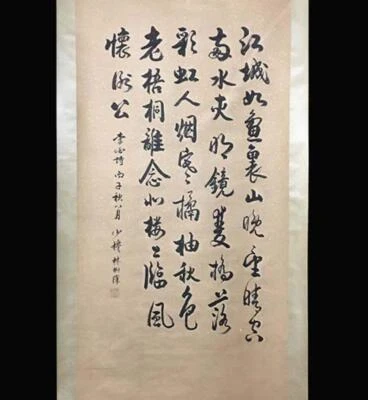 江城如畫裏山晚望晴空
兩水夾明鏡雙橋落
彩虹人烟寒橘柚秋色
老梧桐誰念北樓上臨風
懷謝公
李白詩 丙子秋八月 少穆 林則徐